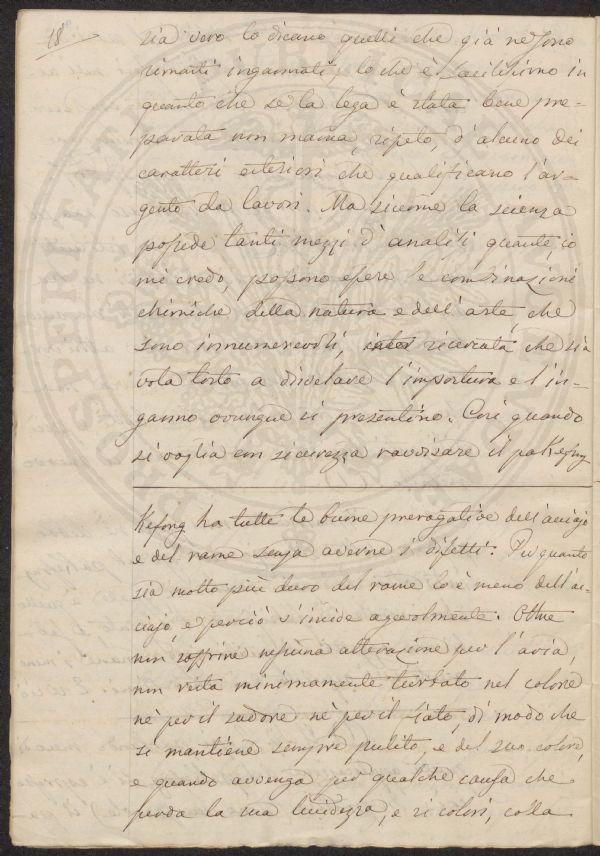 18
sia vero lo dicano quelli che già ne sono
rimasti ingannati, lo che è facilissimo in
quanto che se la lega è stata bene pre-
parata non manca, ripeto, d'alcuno dei
caratteri esteriori che qualificano l'ar-
gento da lavori. Ma siccome la scienza
possede tanti mezzi d'analisi quante, io
mi credo, possono essere le combinazioni
chimiche della natura e dell'arte, che
sono innumerevoli, ricercata che sia
vola tosto a disvelare l'impostura e l'in-
ganno ovunque si presentino. Così quando
si voglia con sicurezza ravvisare il pakfong
Kefong ha tutte le buone prerogative dell'acciajo
e del rame senza averne i difetti. Per quanto
sia molto più duro del rame lo è meno dell'ac-
ciajo, e perciò s'incide agevolmente. Oltre
non soffrire nessuna alterazione per l'aria,
non resta minimamente turbato nel colore
nè per il sudore nè per il fiato, di modo che
si mantiene sempre pulito, e del suo colore,
e quando avvenga per qualche causa che
perda la sua lucidezza, e si colori, colla